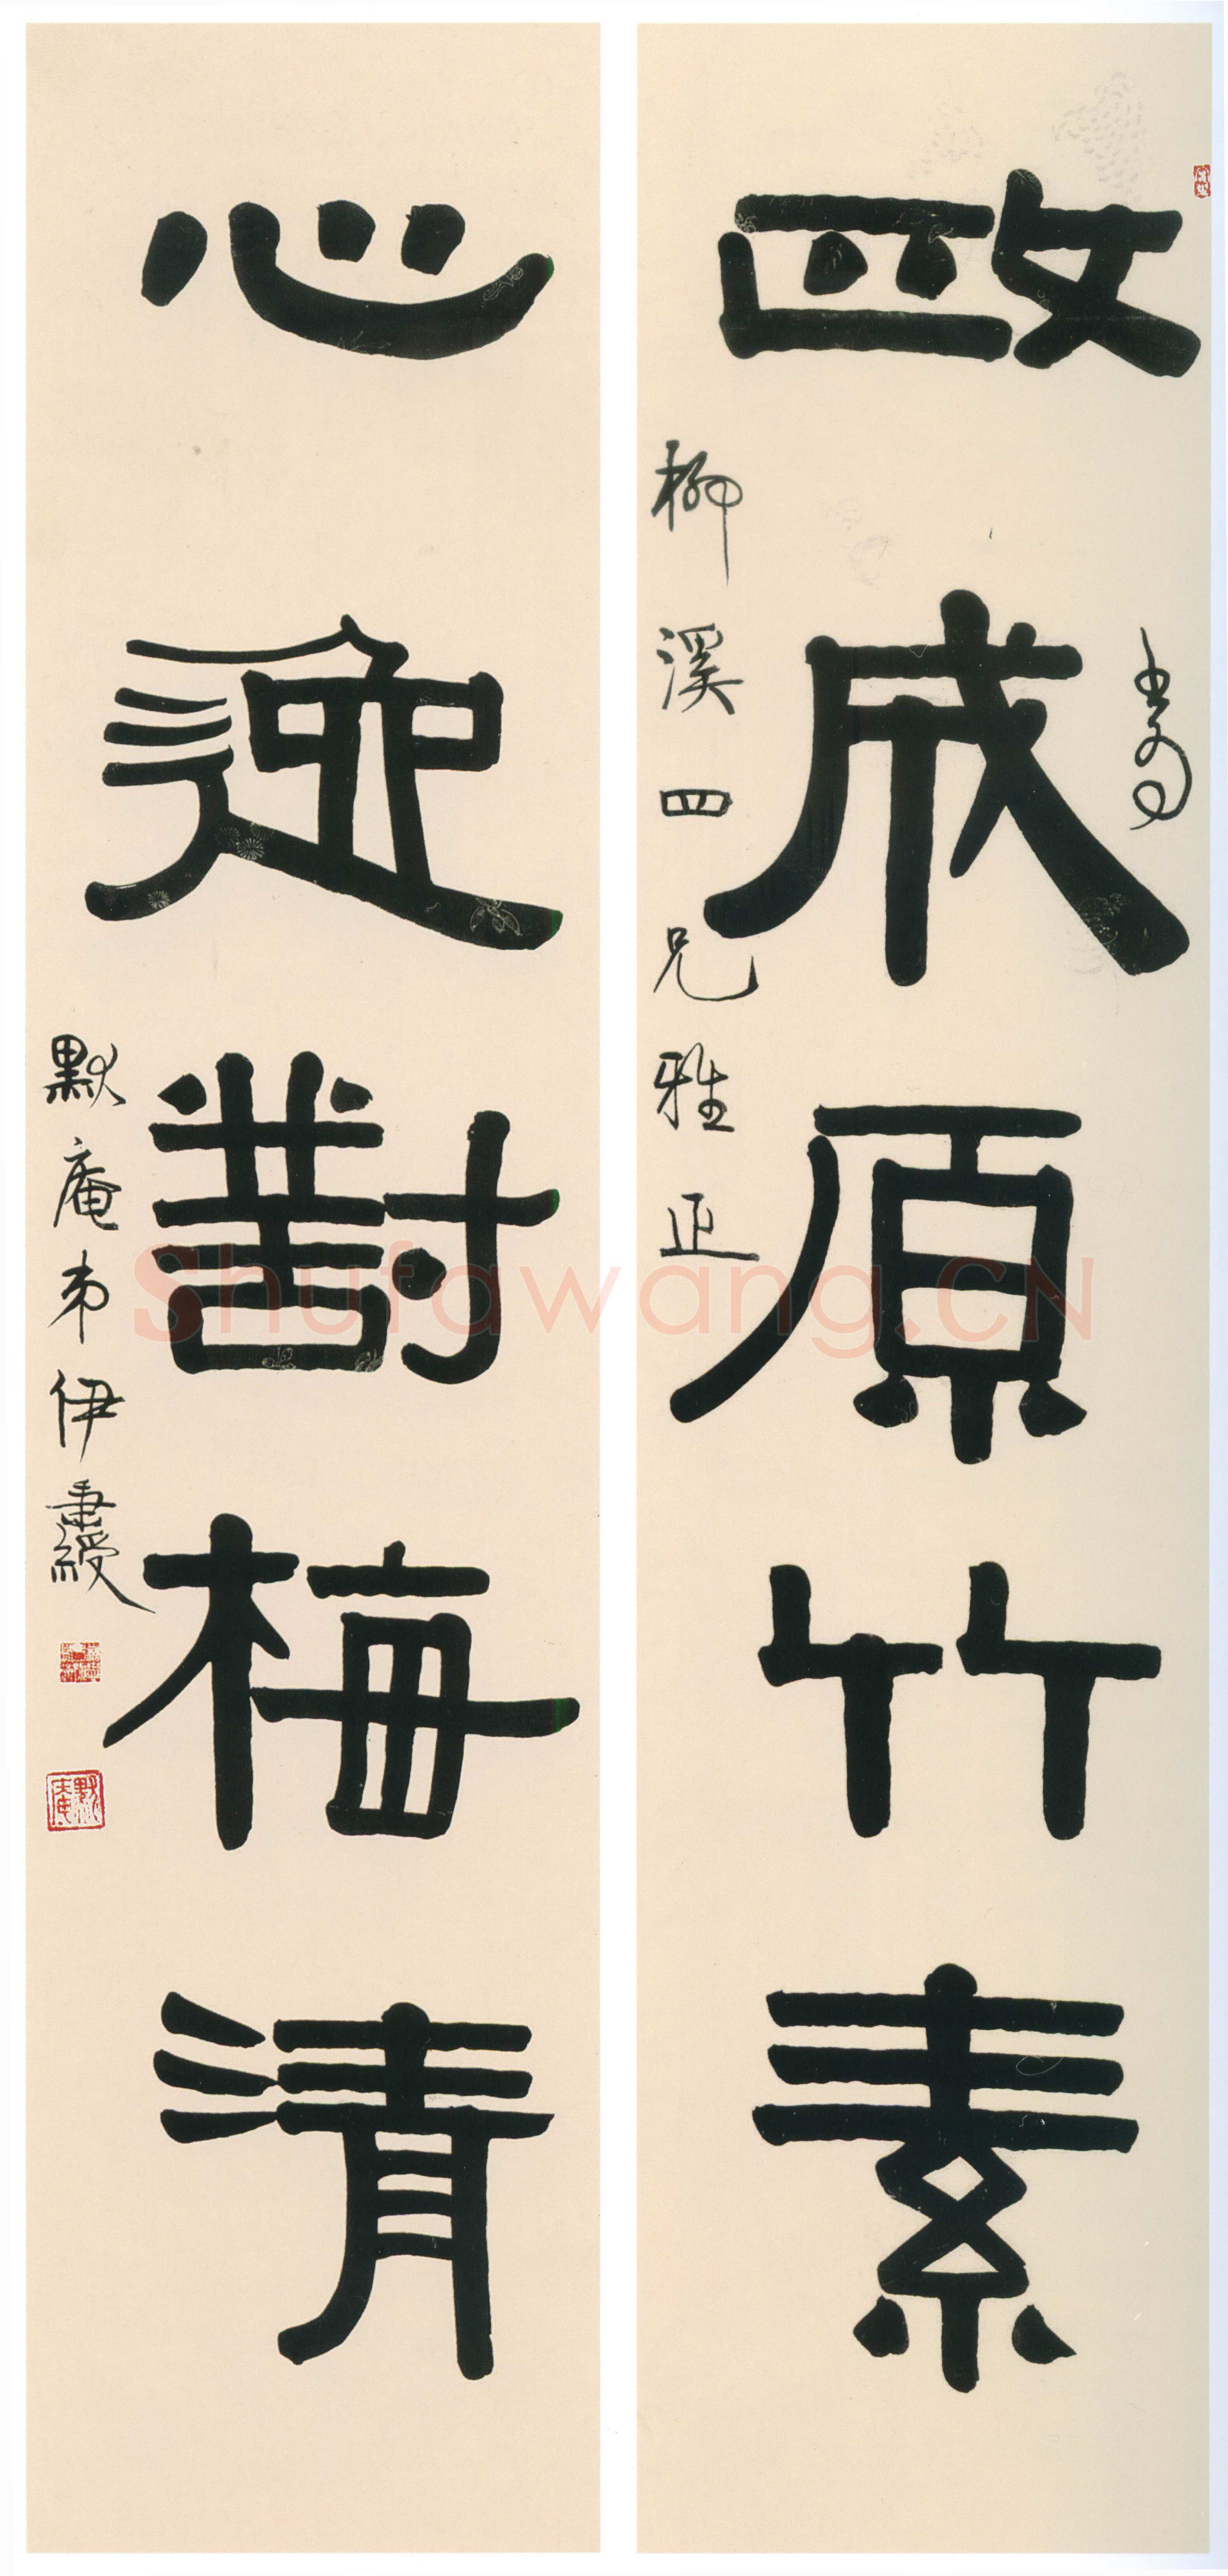 政成原竹素
柳溪四兄雅正
心迹對梅清
默庵弟伊秉綬
默庵
Shufawang.CN